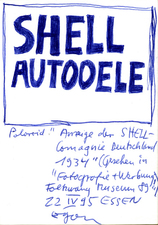 SHELL
AUTOOELE
Polaroid " Anzeige der SHELL-
Compagnie Deutschland
1934" (gesehen in
"Fotografie + Werbung"
Folkwang Museum 89")
22 IV 95 ESSEN